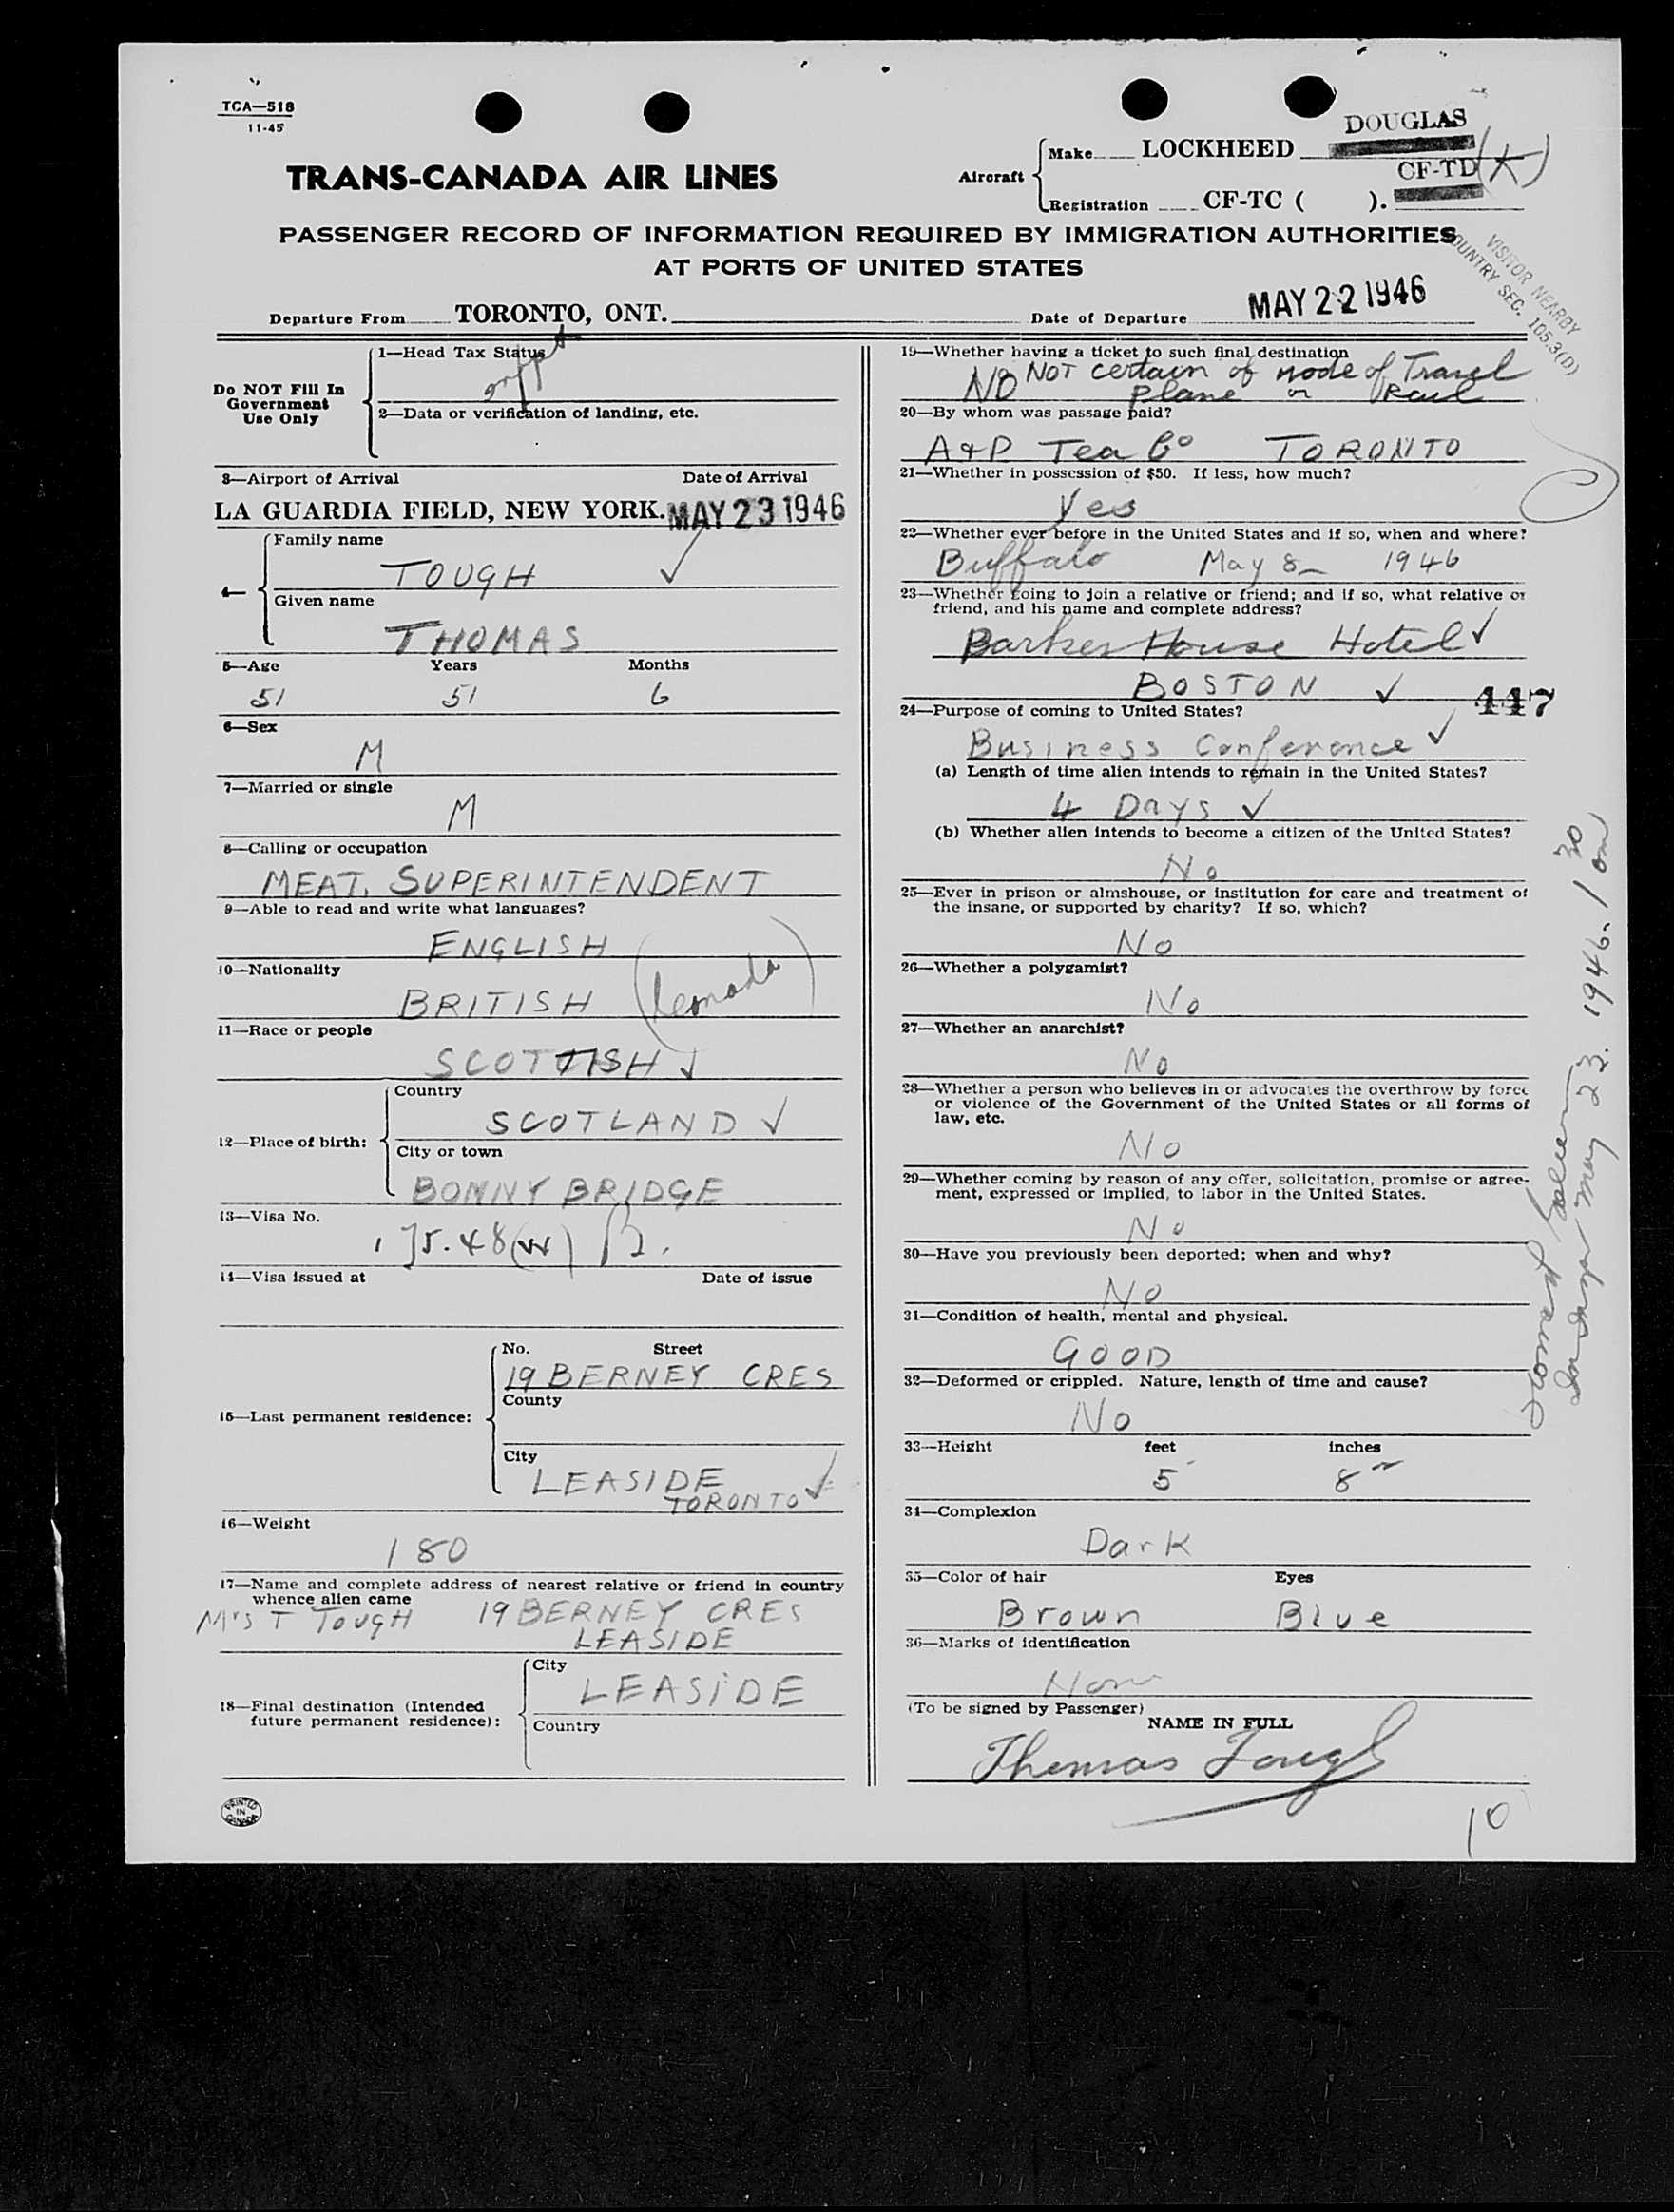 TCA—518
11-45
TRANS-CANADA AIR LINES
Aircraft
Make LOCKHEED
DOUGLAS
Registration CF-TC ( ).
CF-TD (K)
PASSENGER RECORD OF INFORMATION REQUIRED BY IMMIGRATION AUTHORITIES
AT PORTS OF UNITED STATES
VISITOR NEARBY
COUNTRY SEC. 105.3(D)
Departure From TORONTO, ONT.
Date of Departure MAY 22 1946
Do NOT Fill In
Government
Use Only
1—Head Tax Status
2—Data or verification of landing, etc.
3—Airport of Arrival Date of Arrival
LA GUARDIA FIELD, NEW YORK. MAY 23 1946
4—
Family name
TOUGH ✓
Given name
THOMAS
5—Age Years Months
51 51 6
6—Sex
M
7—Married or single
M
8—Calling or occupation
MEAT. SUPERINTENDENT
9—Able to read and write what languages?
ENGLISH
10—Nationality
BRITISH (Canada)
11—Race or people
SCOTTISH ✓
12—Place of birth:
Country
SCOTLAND ✓
City or town
BONNY BRIDGE
13—Visa No.
14—Visa issued at Date of issue
15—Last permanent residence:
No. Street
19 BERNEY CRES
County
City
LEASIDE
TORONTO ✓
16—Weight
180
17—Name and complete address of nearest relative or friend in country
whence alien came
Mrs T TOUGH 19 BERNEY CRES
LEASIDE
18—Final destination (Intended
future permanent residence):
City
LEASIDE
Country
PRINTED
IN
CANADA
19—Whether having a ticket to such final destination
NO NOT certain of mode of Travel
Plane or Rail
20—By whom was passage paid?
A & P Tea Co TORONTO
21—Whether in possession of $50. If less, how much?
Yes
22—Whether ever before in the United States and if so, when and where?
Buffalo May 8— 1946
23—Whether going to join a relative or friend; and if so, what relative or
friend, and his name and complete address?
Parker House Hotel ✓
BOSTON ✓
447
24—Purpose of coming to United States?
Business Conference ✓
(a) Length of time alien intends to remain in the United States?
4 Days ✓
(b) Whether alien intends to become a citizen of the United States?
No
25—Ever in prison or almshouse, or institution for care and treatment of
the insane, or supported by charity? If so, which?
No
26—Whether a polygamist?
No
27—Whether an anarchist?
No
28—Whether a person who believes in or advocates the overthrow by force
or violence of the Government of the United States or all forms of
law, etc.
No
29—Whether coming by reason of any offer, solicitation, promise or agree-
ment, expressed or implied, to labor in the United States.
No
30—Have you previously been deported; when and why?
No
31—Condition of health, mental and physical.
GOOD
32—Deformed or crippled. Nature, length of time and cause?
No
33—Height feet inches
5 8
34—Complexion
Dark
35—Color of hair Eyes
Brown Blue
36—Marks of identification
(To be signed by Passenger)
NAME IN FULL
Thomas Tough
10
May 23. 1946. 1 30